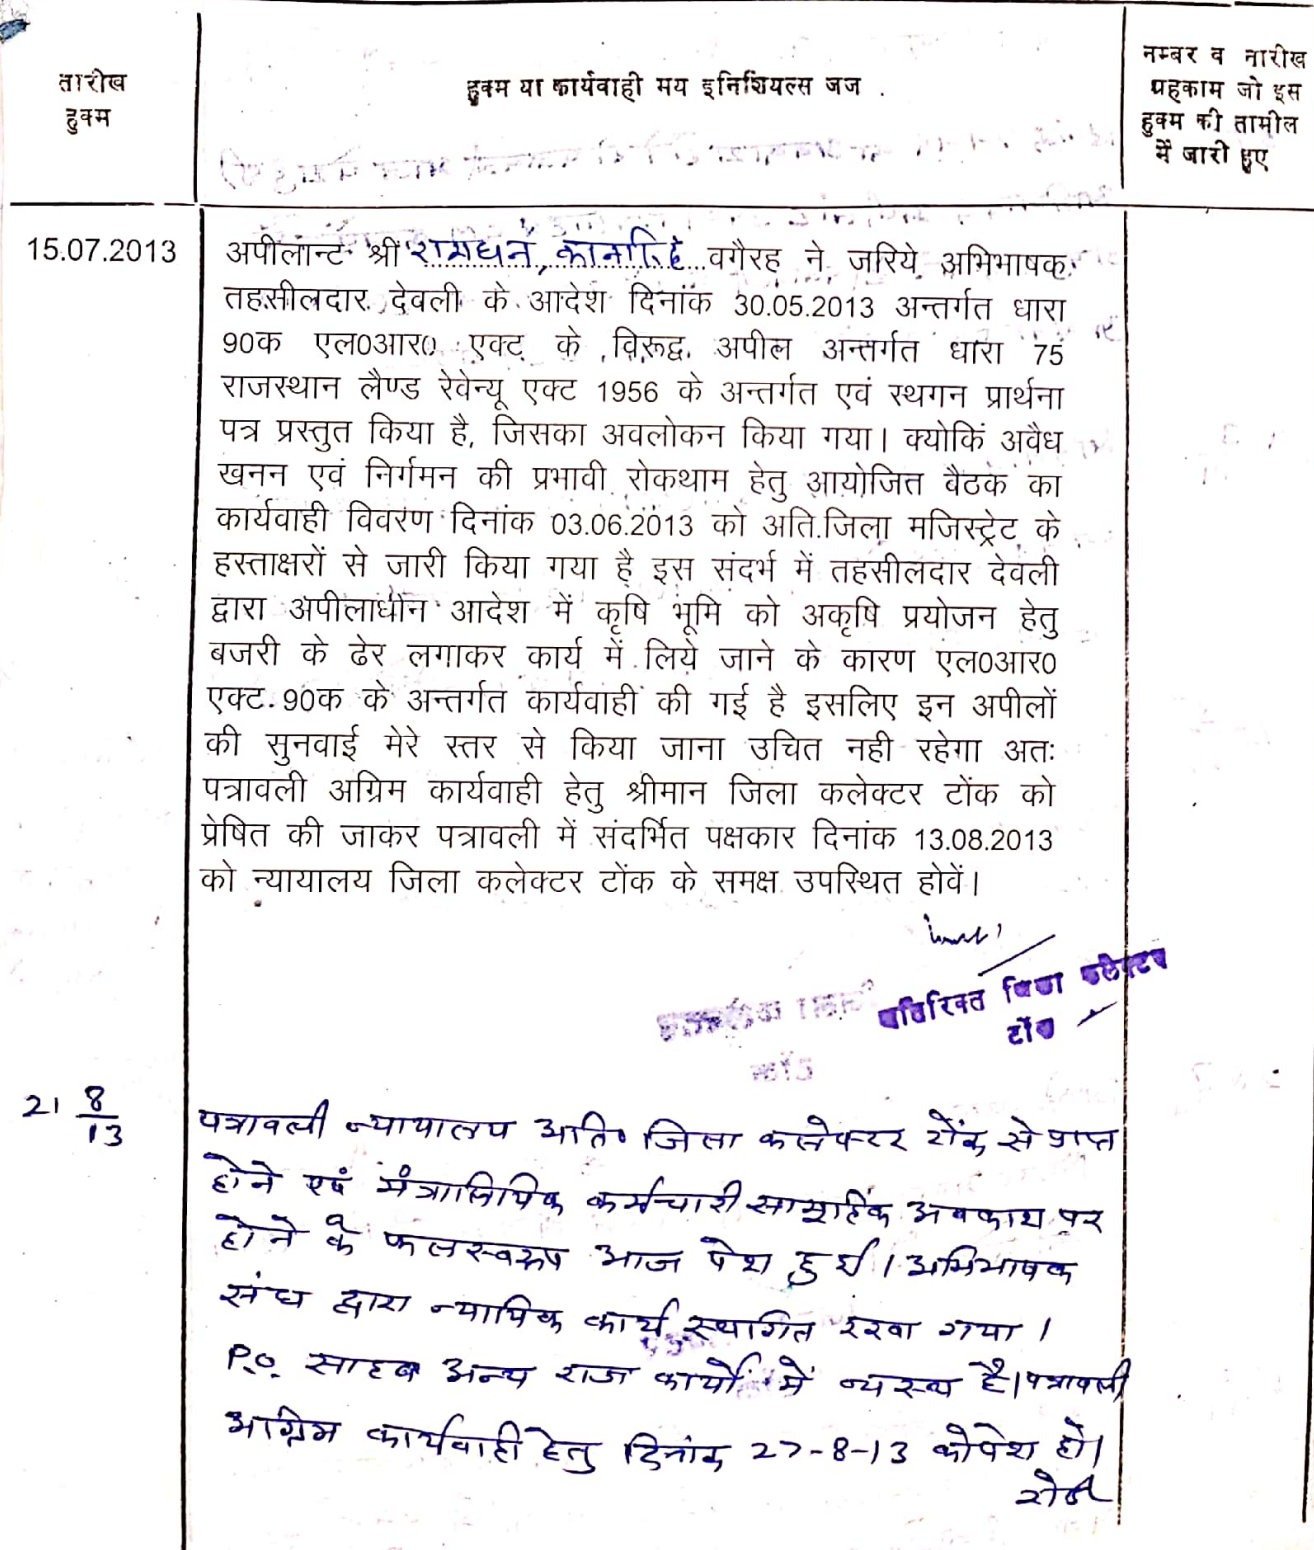 तारीख
हुक्म
हुक्म या कार्यवाही मय इनिशियल्स जज
नम्बर व तारीख
अहकाम जो इस
हुक्म की तामील
में जारी हुए
15.07.2013
अपीलान्ट श्री रामधन, कानसिंह वगैरह ने जरिये अभिभाषक
तहसीलदार देवली के आदेश दिनांक 30.05.2013 अन्तर्गत धारा
90क एल0आर0 एक्ट के विरूद्व अपील अन्तर्गत धारा 75
राजस्थान लैण्ड रेवेन्यू एक्ट 1956 के अन्तर्गत एवं स्थगन प्रार्थना
पत्र प्रस्तुत किया है, जिसका अवलोकन किया गया। क्योकिं अवैध
खनन एवं निर्गमन की प्रभावी रोकथाम हेतु आयोजित बैठक का
कार्यवाही विवरण दिनांक 03.06.2013 को अति.जिला मजिस्ट्रेट के
हस्ताक्षरों से जारी किया गया है इस संदर्भ में तहसीलदार देवली
द्वारा अपीलाधीन आदेश में कृषि भूमि को अकृषि प्रयोजन हेतु
बजरी के ढेर लगाकर कार्य में लिये जाने के कारण एल0आर0
एक्ट 90क के अन्तर्गत कार्यवाही की गई है इसलिए इन अपीलों
की सुनवाई मेरे स्तर से किया जाना उचित नही रहेगा अतः
पत्रावली अग्रिम कार्यवाही हेतु श्रीमान जिला कलेक्टर टोंक को
प्रेषित की जाकर पत्रावली में संदर्भित पक्षकार दिनांक 13.08.2013
को न्यायालय जिला कलेक्टर टोंक के समक्ष उपस्थित होवें।
अतिरिक्त जिला कलेक्टर
टोंक
21 8/13
पत्रावली न्यायालय अति॰ जिला कलेक्टर टोंक से प्राप्त
होने एवं मंत्रालियिक कर्मचारी सामूहिक अवकाश पर
होने के फलस्वरूप आज पेश हुई। अभिभाषक
संघ द्वारा न्यायिक कार्य स्थगित रखा गया।
P.O. साहब अन्य राज कार्यो में व्यस्थ है। पत्रावली
अग्रिम कार्यवाही हेतु दिनांक 27-8-13 को पेश हो।